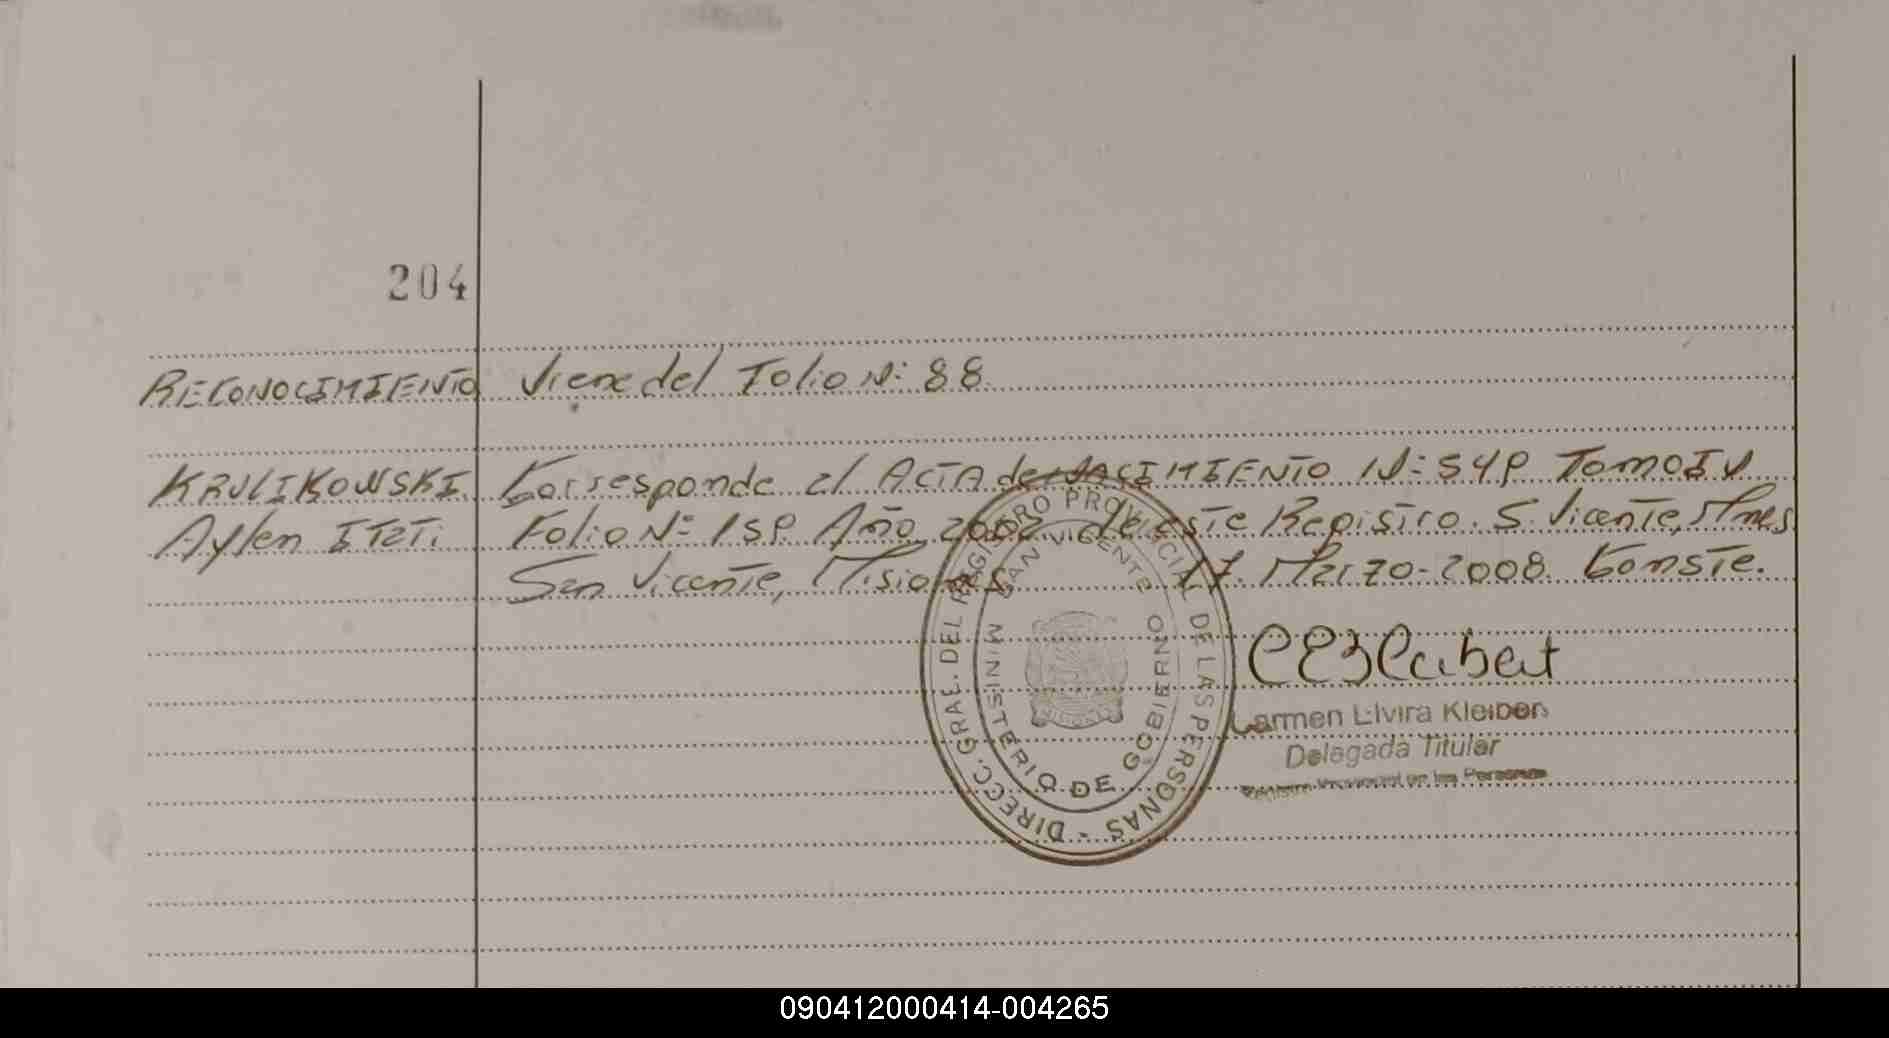 204
RECONOCIMIENTO Viene del Folio Nº 88
KRULIKOWSKI Corresponde al ACTA de NACIMIENTO Nº 549 Tomo IV
Aylen ITATI Folio Nº 159 Año 2002 de este Registro. S. Vicente, Mnes
San Vicente, Misiones 17. Marzo-2008. Conste.
DIRECC. GRAE. DEL REGISTRO PROVINCIAL DE LAS PERSONAS -
SAN VICENTE
MINISTERIO DE GOBIERNO
MISIONES
Carmen Elvira Kleiber
Delegada Titular
Registro Provincial de las Personas
090412000414-004265